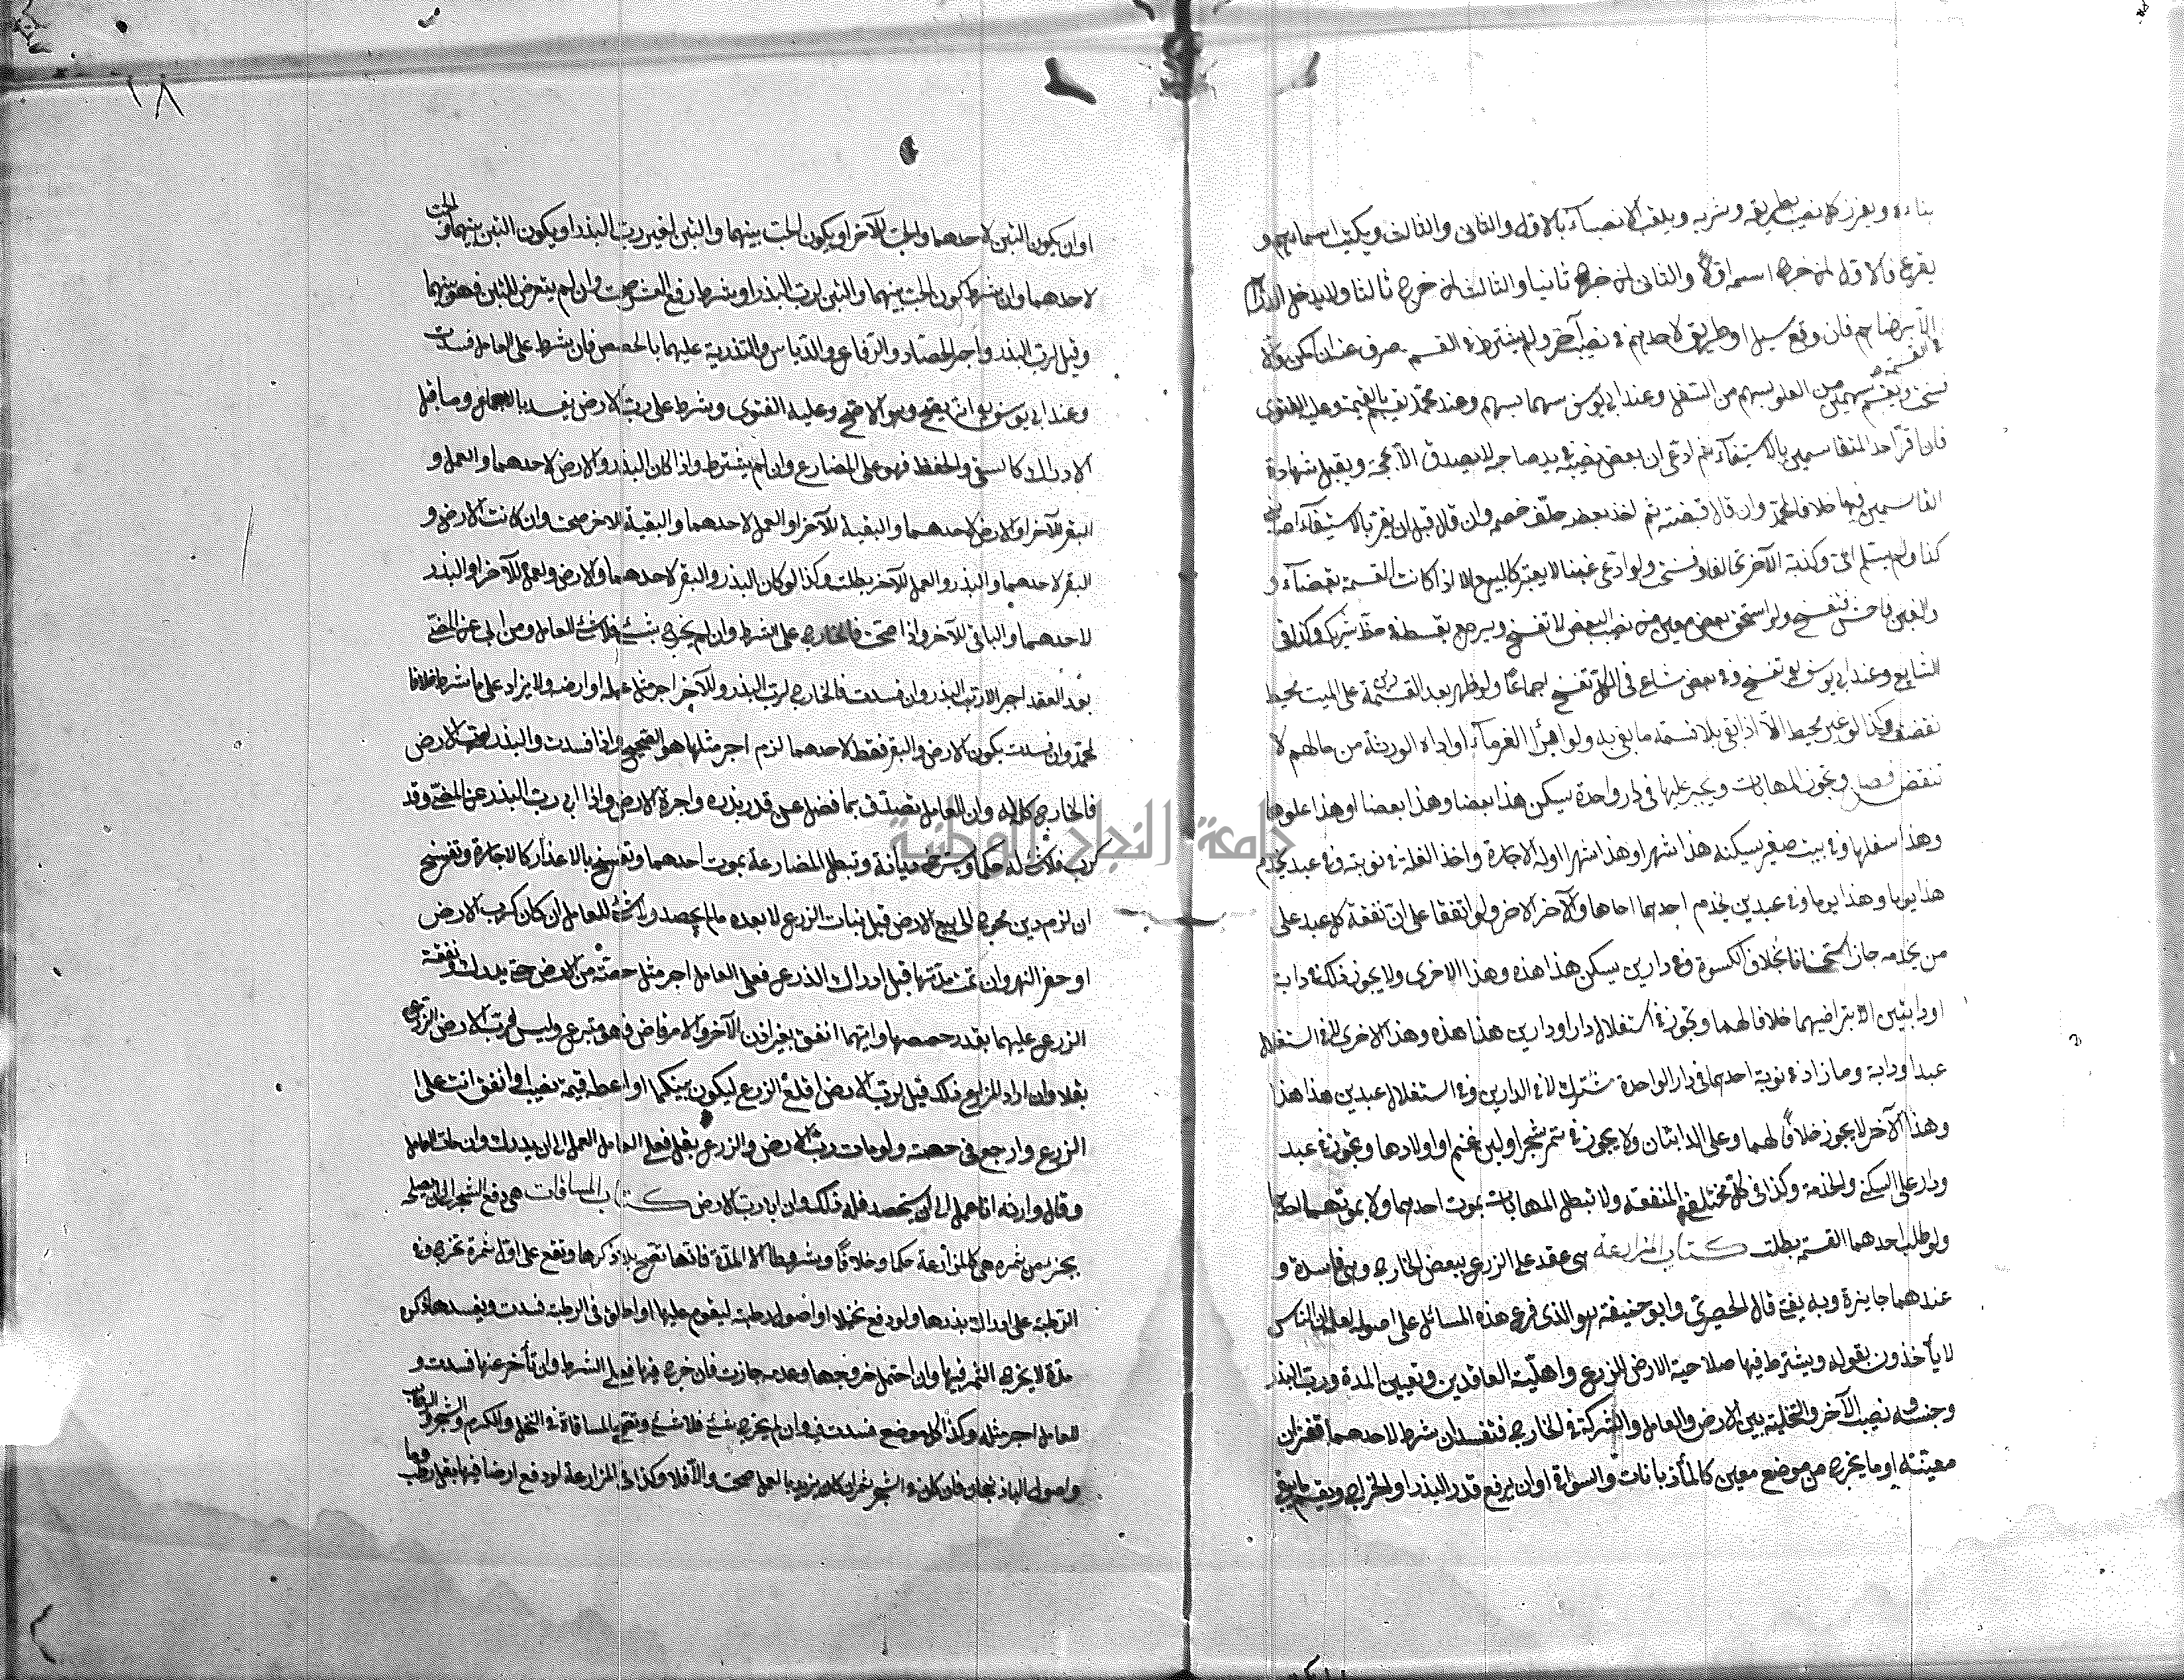 بناءه ويفرز كل نصيب بطريقه وشربه ويلقب الانصباء بالاول والثاني والثالث ويكتب اسماءهم و
يقرع فالاول لمن خرج اسمه اولا والثاني لمن خرج ثانيا والثالث لمن خرج ثالثا ولا يدخل الدراهم
في القسمة
الا برضاهم فان وقع مسيل او طريق لاحدهم في نصيب آخر ولم يشترط في القسمة صرف عنه ان امكن والا
فسخت ويقسم سهمين من العلو بسهم من السفل وعند ابي يوسف سهما بسهم وعند محمد يقسم بالقيمة وعليه الفتوى
فان اقر احد المتقاسمين بالاستيفاء ثم ادعى ان بعض نصيبه في يد صاحبه لا يصدق الا بحجة ويقبل شهادة
القاسمين فيها خلافا لمحمد وان قال قبضته ثم اخذ بعضه حلف خصمه وان قال قبل ان يقر بالاستيفاء اصابني
كذا ولم يسلم الي وكذبه الآخر تحالفا وفسخت ولو ادعى غبنا لا يعتبر كالبيع الا اذا كانت القسمة بقضاء و
الغبن فاحش فتفسخ ولو استحق بعض معين من نصيب البعض لا تفسخ ويرجع بقسطه في حظ شريكه وكذا في
الشايع وعند ابي يوسف تفسخ وفي بعض شاع في الكل تفسخ اجماعا ولو ظهر بعد القسمة دين على الميت محيط
نقضت وكذا لو غير محيط الا اذا بقي بلا قسمة ما يفي به ولو ابرأ الغرماء او اداه الورثة من مالهم لا
تنقض فصل وتجوز المهايات ويجبر عليها في دار واحدة يسكن هذا بعضا وهذا بعضا او هذا علوها
وهذا سفلها وفي بيت صغير يسكنه هذا شهرا وهذا شهرا وله الاجارة واخذ الغلة في نوبته وفي عبد يخدم
هذا يوما وهذا يوما وفي عبدين يخدم احدهما احدهما والآخر الآخر ولو اتفقا على ان نفقة كل عبد على
من يخدمه جاز استحسانا بخلاف الكسوة وفي دارين يسكن هذا هذه وهذا الاخرى ولا يجوز ذلك في دابة
او دابتين الا بتراضيهما خلافا لهما وتجوز في استغلال دار او دارين هذا هذه وهذا الاخرى لا في استغلال
عبد او دابة وما زاد في نوبة احدهما في الدار الواحدة مشترك لا في الدارين وفي استغلال عبدين هذا هذا
وهذا الآخر لا يجوز خلافا لهما وعلى الدابتان ولا يجوز في ثمر شجر او لبن غنم او اولادها وتجوز في عبد
ودار على السكنى والخدمة وكذا في كل مختلفي المنفعة ولا تبطل المهايات بموت احدهما ولا بموتهما
ولو طلب احدهما القسمة بطلت كتاب المزارعة هي عقد على الزرع ببعض الخارج وهي فاسدة و
عندهما جايزة وبه يفتى قال الحصيري وابو حنيفة هو الذي فرع هذه المسائل على اصوله لعلمه ان الناس
لا يأخذون بقوله ويشترط فيها صلاحية الارض للزرع واهلية العاقدين وتعيين المدة ورب البذر
وجنسه ونصيب الآخر والتخلية بين الارض والعامل والشركة في الخارج فتفسد ان شرط لاحدهما قفزان
معينة او ما يخرج من موضع معين كالماذيانات والسواقي او ان يرفع قدر البذر او الخراج ويقسم ما بقي
١٨
او ان يكون التبن لاحدهما والحب للآخر او يكون الحب بينهما والتبن لغير رب البذر او يكون التبن بينهما والحب
لاحدهما وان شرط كون الحب بينهما والتبن لرب البذر او شرط رفع العشر صحت وان لم يتعرض للتبن فهو بينهما
وقيل لرب البذر واجر الحصاد والرفاع والدياس والتذرية عليهما بالحصص فان شرط على العامل فسدت
وعند ابي يوسف انه يصح وهو الاصح وعليه الفتوى وشرط على رب الارض يفسد بالاجماع وما قبل
الادراك كالسقي والحفظ فهو على المضارع وان لم يشترط واذا كان البذر والارض لاحدهما والعمل و
البقر للآخر او الارض لاحدهما والبقية للآخر او العمل لاحدهما والبقية للاخر صحت وان كانت الارض و
البقر لاحدهما والبذر والعمل للآخر بطلت وكذا لو كان البذر والبقر لاحدهما والارض والعمل للآخر او البذر
لاحدهما والباقي للآخر واذا صحت فالخارج على الشرط وان لم يخرج شئ فلا شئ للعامل ومن ابى عن المضي
بعد العقد اجبر الا رب البذر وان فسدت فالخارج لرب البذر وللآخر اجر مثل عمله او ارضه ولا يزاد على ما شرط خلافا
لمحمد وان فسدت بكون الارض والبقر فقط لاحدهما لزم اجر مثلها هو الصحيح واذا فسدت والبذر لرب الارض
فالخارج كله له وان للعامل يتصدق بما فضل عن قدر بذره واجرة الارض واذا ابى رب البذر عن المضي وقد
كرب فلا شئ له حكما ويسترضى ديانة وتبطل المضارعة بموت احدهما وتفسخ بالاعذار كالاجارة وتفسخ
ان لزم دين محوج الى بيع الارض قبل نبات الزرع لا بعده ما لم يحصد ولا شئ للعامل ان كان كرب الارض
او حفر النهر وان تمت مدتها قبل ادراك الذرع فعلى العامل اجر مثل حصته من الارض حتى يدرك ونفقة
الزرع عليهما بقدر حصصهما وايهما انفق بغير اذن الآخر والا امر قاض فهو متبرع وليس لرب الارض الزرع
بقلا وان اراد المزارع ذلك قيل لرب الارض اقلع الزرع ليكون بينكما او اعطه قيمة نصيبه او انفق انت على
الزرع وارجع في حصته ولو مات رب الارض والزرع بقل فعلى العامل العمل الى ان يدرك وان مات العامل
وقال وارثه انا عمل الى ان يستحصد فله ذلك وان ابا رب الارض كتاب المساقات هي دفع الشجر الى من يصلحه
بجزء من ثمره هي كالمزارعة حكما وخلافا وشروطا الا المدة فانها تصح بلا ذكرها وتقع على اول ثمرة تخرج وفي
الرطبة على ادراك بذرها ولو دفع نخيلا او اصول رطبة ليقوم عليها او اطلق في الرطبة فسدت ويفسدها ذكر
مدة لا يخرج الثمر فيها وان احتمل خروجها وعدمه جازت فان خرج فيها فعلى الشرط وان تأخر عنها فسدت و
للعامل اجر مثله وكذا كل موضع فسدت فيه وان لم يخرج شئ فلا شئ وتصح المساقاة في النخل والكرم والشجر والرطاب
واصول الباذنجان فان كان في الشجر ثمر ان كان يزيد بالعمل صحت والا فلا وكذا في المزارعة لو دفع ارضا فيها بقل رطب وما
جامعة النجاح الوطنية